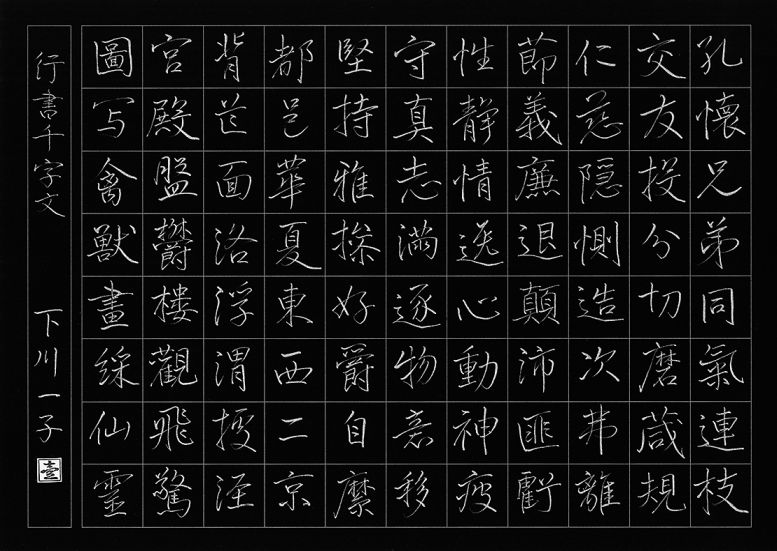 孔懷兄弟同氣連枝
交友投分切磨箴規
仁慈隠惻造次弗離
節義廉退顛沛匪虧
性静情逸心動神疲
守真志満逐物意移
堅持雅操好爵自縻
都邑華夏東西二京
背芒面洛浮渭據涇
宮殿盤鬱樓觀飛驚
圖写禽獣畫綵仙靈
行書千字文 下川一子